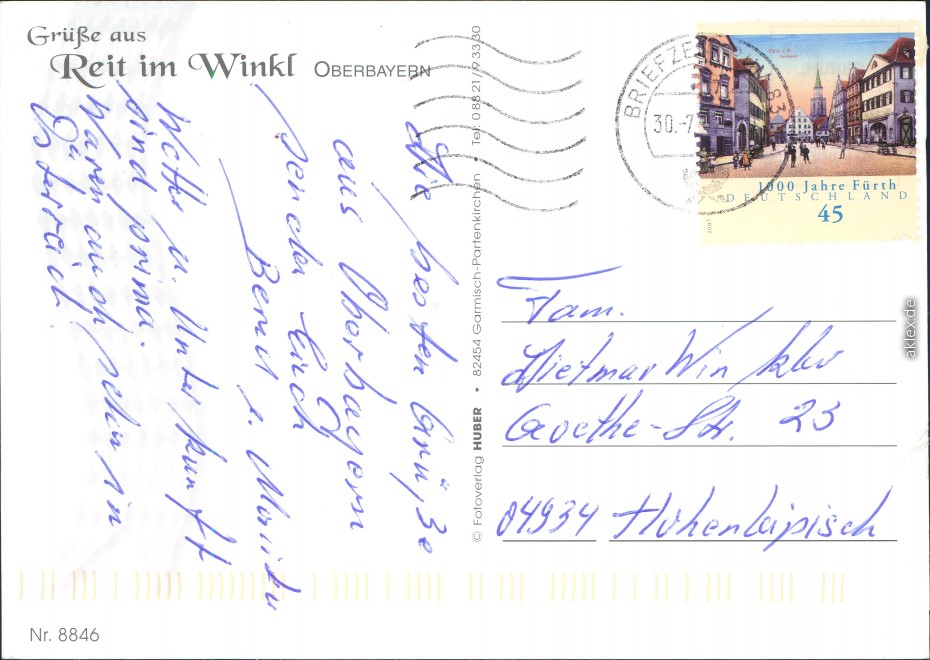 Grüße aus
Reit im Winkl OBERBAYERN
Die besten Grüße
aus Oberbayern
senden Euch
Bernd u. Monika
Wetter u. Unterkunft
sind prima.
Waren auch schon in
Österreich
© Fotoverlag HUBER • 82454 Garmisch-Partenkirchen Tel. 0 88 21/9 33 30
BRIEFZE 83
30.-7
1000 Jahre Fürth
DEUTSCHLAND
45
2007
Fam.
Dietmar Winkler
Goethe-Str. 23
04934 Hohenleipisch
Nr. 8846
aklex.de